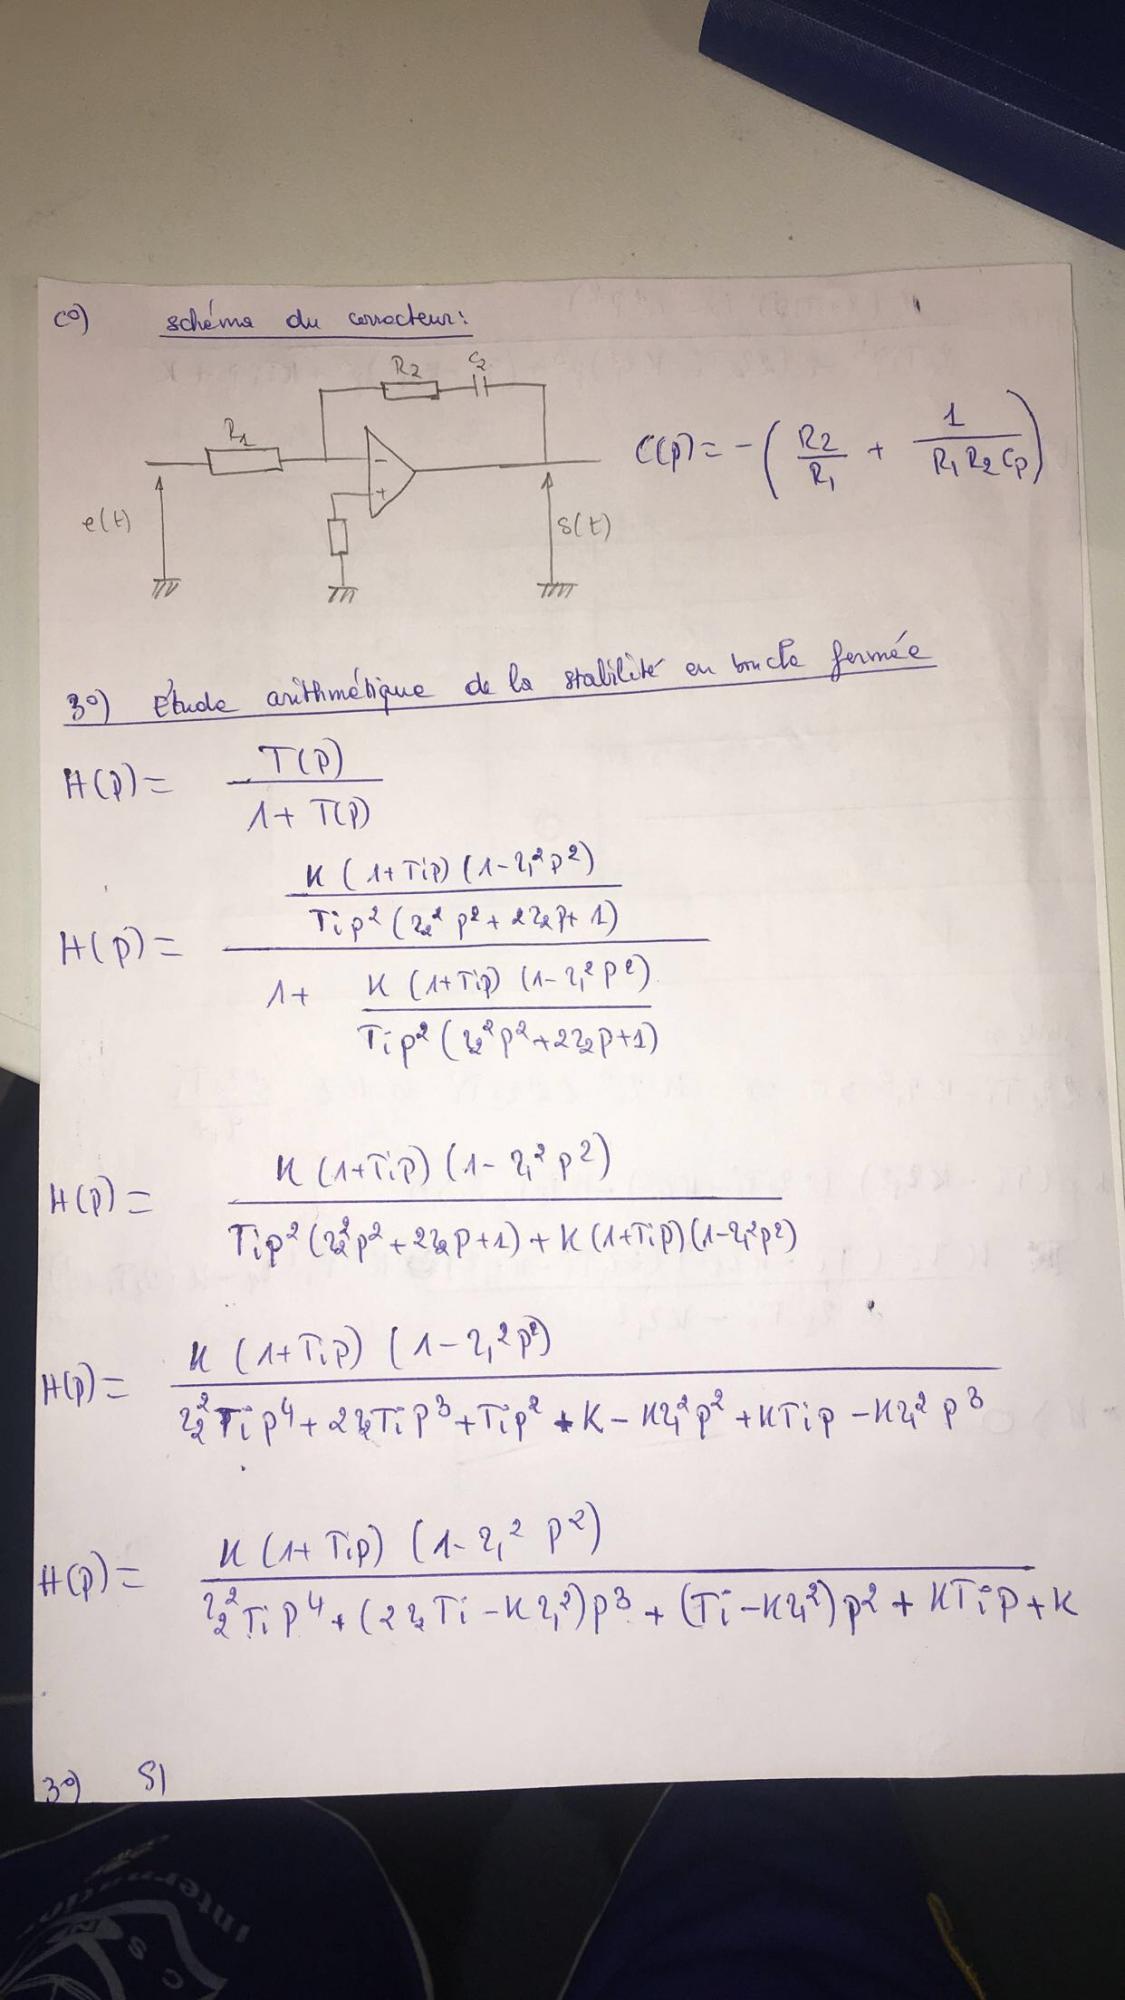 c°) schéma du correcteur:
R2 C2
R1
C(p) = - ( R2/R1 + 1/(R1 R2 Cp) )
-
+
e(t) s(t)
3°) Étude arithmétique de la stabilité en boucle fermée
H(p) = T(p) / (1 + T(p))
H(p) = [ K (1+Tip) (1-τ1²p²) / Tip² (τ2² p² + 2τ2p + 1) ] / [ 1 + K (1+Tip) (1-τ1²p²) / Tip² (τ2²p² + 2τ2p + 1) ]
H(p) = K (1+Tip) (1-τ1²p²) / [ Tip² (τ2²p² + 2τ2p + 1) + K (1+Tip) (1-τ1²p²) ]
H(p) = K (1+Tip) (1-τ1²p²) / [ τ2² Tip⁴ + 2τ2Tip³ + Tip² + K - Kτ1²p² + KTip - Kτ1² p³ ]
H(p) = K (1+Tip) (1-τ1² p²) / [ τ2² Tip⁴ + (2τ2Ti - Kτ1²)p³ + (Ti - Kτ1²)p² + KTip + K ]
3°) SI